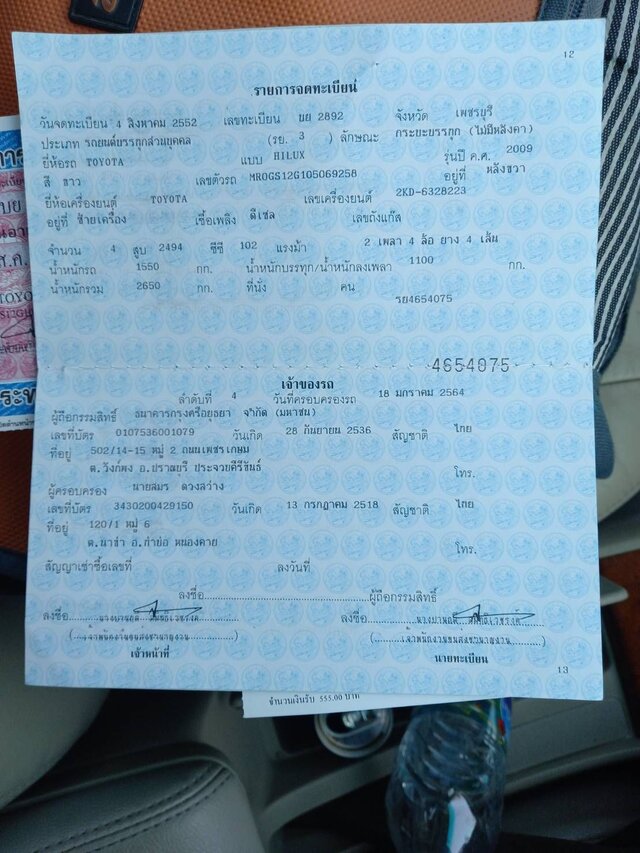 12
รายการจดทะเบียน
วันจดทะเบียน 4 สิงหาคม 2552 เลขทะเบียน บย 2892 จังหวัด เพชรบุรี
ประเภท รถยนต์บรรทุกส่วนบุคคล (รย. 3 ) ลักษณะ กระบะบรรทุก (ไม่มีหลังคา)
ยี่ห้อรถ TOYOTA แบบ HILUX รุ่นปี ค.ศ. 2009
สี ขาว เลขตัวรถ MROGS12G105069258 อยู่ที่ หลังขวา
ยี่ห้อเครื่องยนต์ TOYOTA เลขเครื่องยนต์ 2KD-6328223
อยู่ที่ ซ้ายเครื่อง เชื้อเพลิง ดีเซล เลขถังแก๊ส
จำนวน 4 สูบ 2494 ซีซี 102 แรงม้า 2 เพลา 4 ล้อ ยาง 4 เส้น
น้ำหนักรถ 1550 กก. น้ำหนักบรรทุก/น้ำหนักลงเพลา 1100 กก.
น้ำหนักรวม 2650 กก. ที่นั่ง คน
รย4654075
4654075
เจ้าของรถ
ลำดับที่ 4 วันที่ครอบครองรถ 18 มกราคม 2564
ผู้ถือกรรมสิทธิ์ ธนาคารกรุงศรีอยุธยา จำกัด (มหาชน)
เลขที่บัตร 0107536001079 วันเกิด 28 กันยายน 2536 สัญชาติ ไทย
ที่อยู่ 502/14-15 หมู่ 2 ถนนเพชรเกษม
ต.วังก์พง อ.ปราณบุรี ประจวบคีรีขันธ์ โทร.
ผู้ครอบครอง นายสมร ดวงสว่าง
เลขที่บัตร 3430200429150 วันเกิด 13 กรกฎาคม 2518 สัญชาติ ไทย
ที่อยู่ 120/1 หมู่ 6
ต.นาข่า อ.ท่าบ่อ หนองคาย โทร.
สัญญาเช่าซื้อเลขที่ ลงวันที่
ลงชื่อ ผู้ถือกรรมสิทธิ์
ลงชื่อ ลงชื่อ
เจ้าหน้าที่ นายทะเบียน
13
จำนวนเงินรับ 555.00 บาท